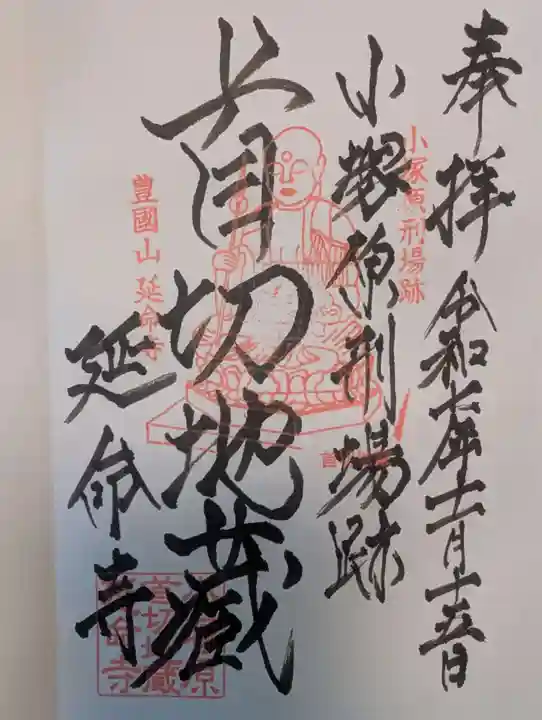 奉拝 令和七年十二月十五日
小塚原刑場跡
小塚原刑場跡
首切地蔵
豊國山 延命寺
延命寺